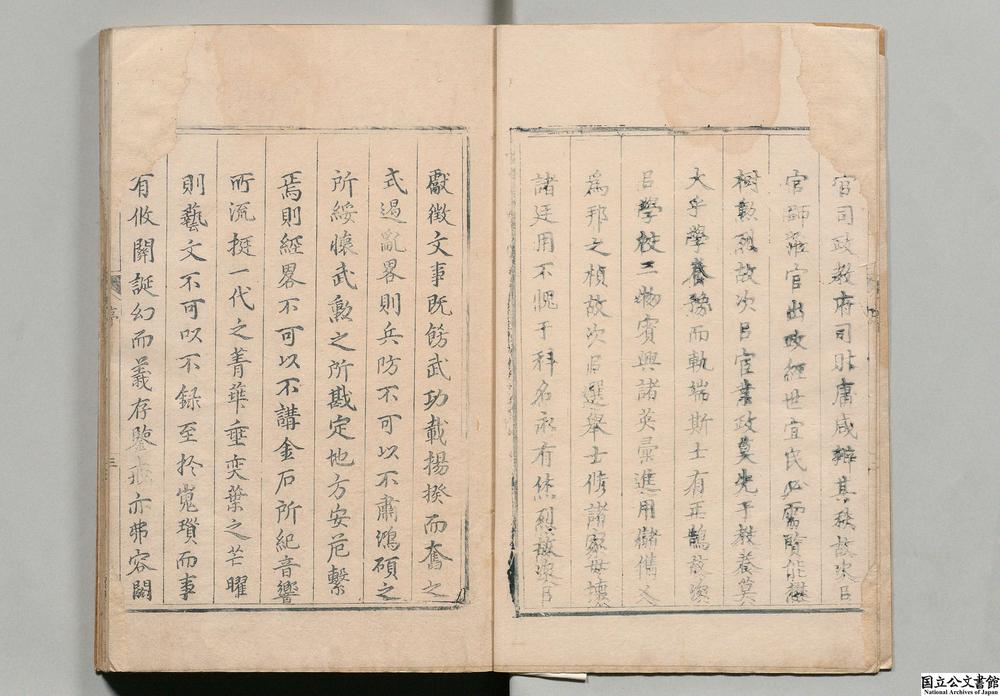 官司政教府司卑庸咸辨其秩故次曰
官師蒞官出政經世宜民必需賢能懋
樹勲烈故次曰宦業政莫先于教養莫
大乎學養豫而軌端斯士有正鵠故次
曰學校三物賓興諸英彙進用儲
為邦之楨故次曰選舉士修諸家毋壞
諸廷用不愧于科名永有休烈故次曰
獻徵文事既飭武功載揚揆而奮之
式遏亂畧則兵防不可以不肅鴻碩之
所綏懷武勲之所戡定地方安危繫
焉則經畧不可以不講金石所紀音響
所流挺一代之菁華垂奕葉之芒曜
則藝文不可以不錄至於嵬瑣而事
有攸關誕幻而義存鑒戒亦弗容闕
序
国立公文書館
National Archives of Japan